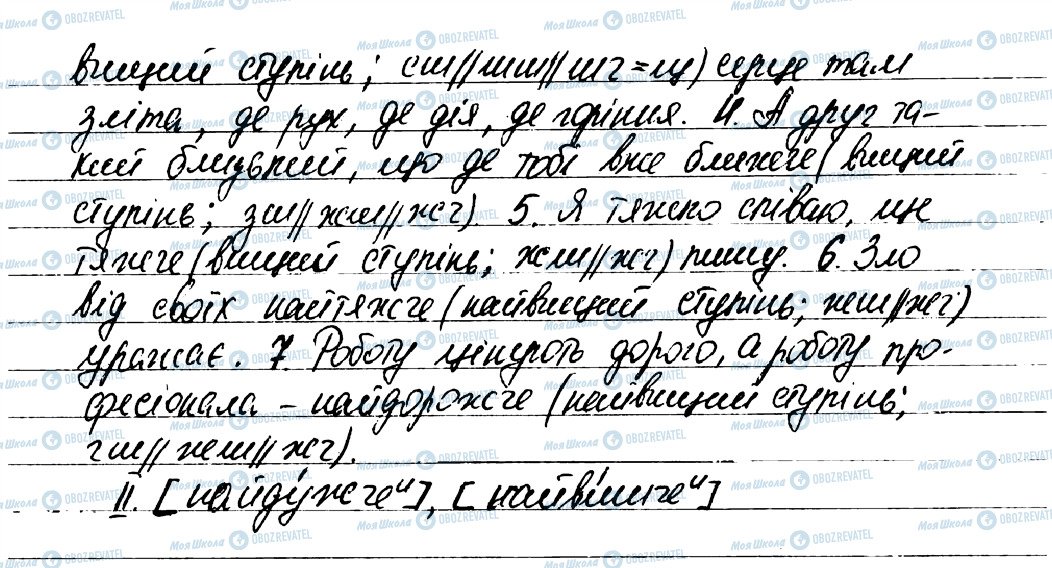 вищий ступінь; сш//шш//шч=щ) серце там
зліта, де рух, де дія, де горіння. 4. А друг та-
кий близький, що де тобі вже ближче (вищий
ступінь; зш//жш//жч). 5. Я тяжко співаю, ще
тяжче (вищий ступінь; жш//жч) пишу. 6. Зло
від своїх найтяжче (найвищий ступінь; жш//жч)
уражає. 7. Роботу цінують дорого, а роботу про-
фесіонала – найдорожче (найвищий ступінь;
гш//жш//жч).
ІІ. [найду́жчеᵘ], [найви́шчеᵘ]